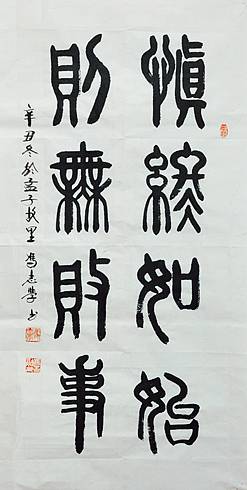 慎終如始
則無敗事
辛丑冬於孟子故里馮志學书